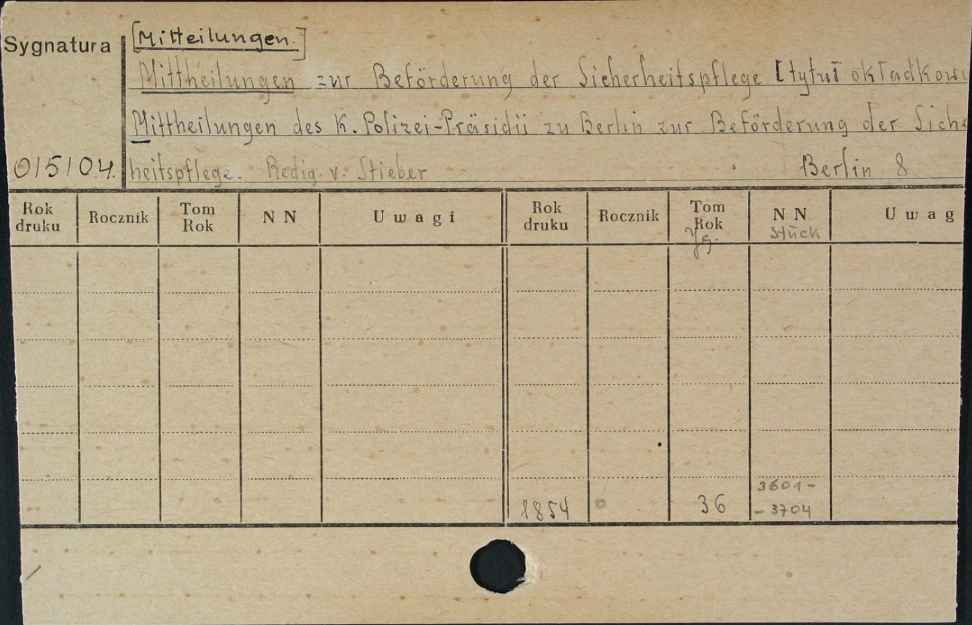 Sygnatura
[Mitteilungen.]
Mittheilungen zur Beförderung der Sicherheitspflege [tytuł okładkow
Mittheilungen des K. Polizei-Präsidii zu Berlin zur Beförderung der Siche
015104. heitspflege. Redig. v. Stieber Berlin 8
Rok druku Rocznik Tom Rok NN Uwagi Rok druku Rocznik Tom Rok Jg. NN Stück Uwag
1854 36 3601-
-3704